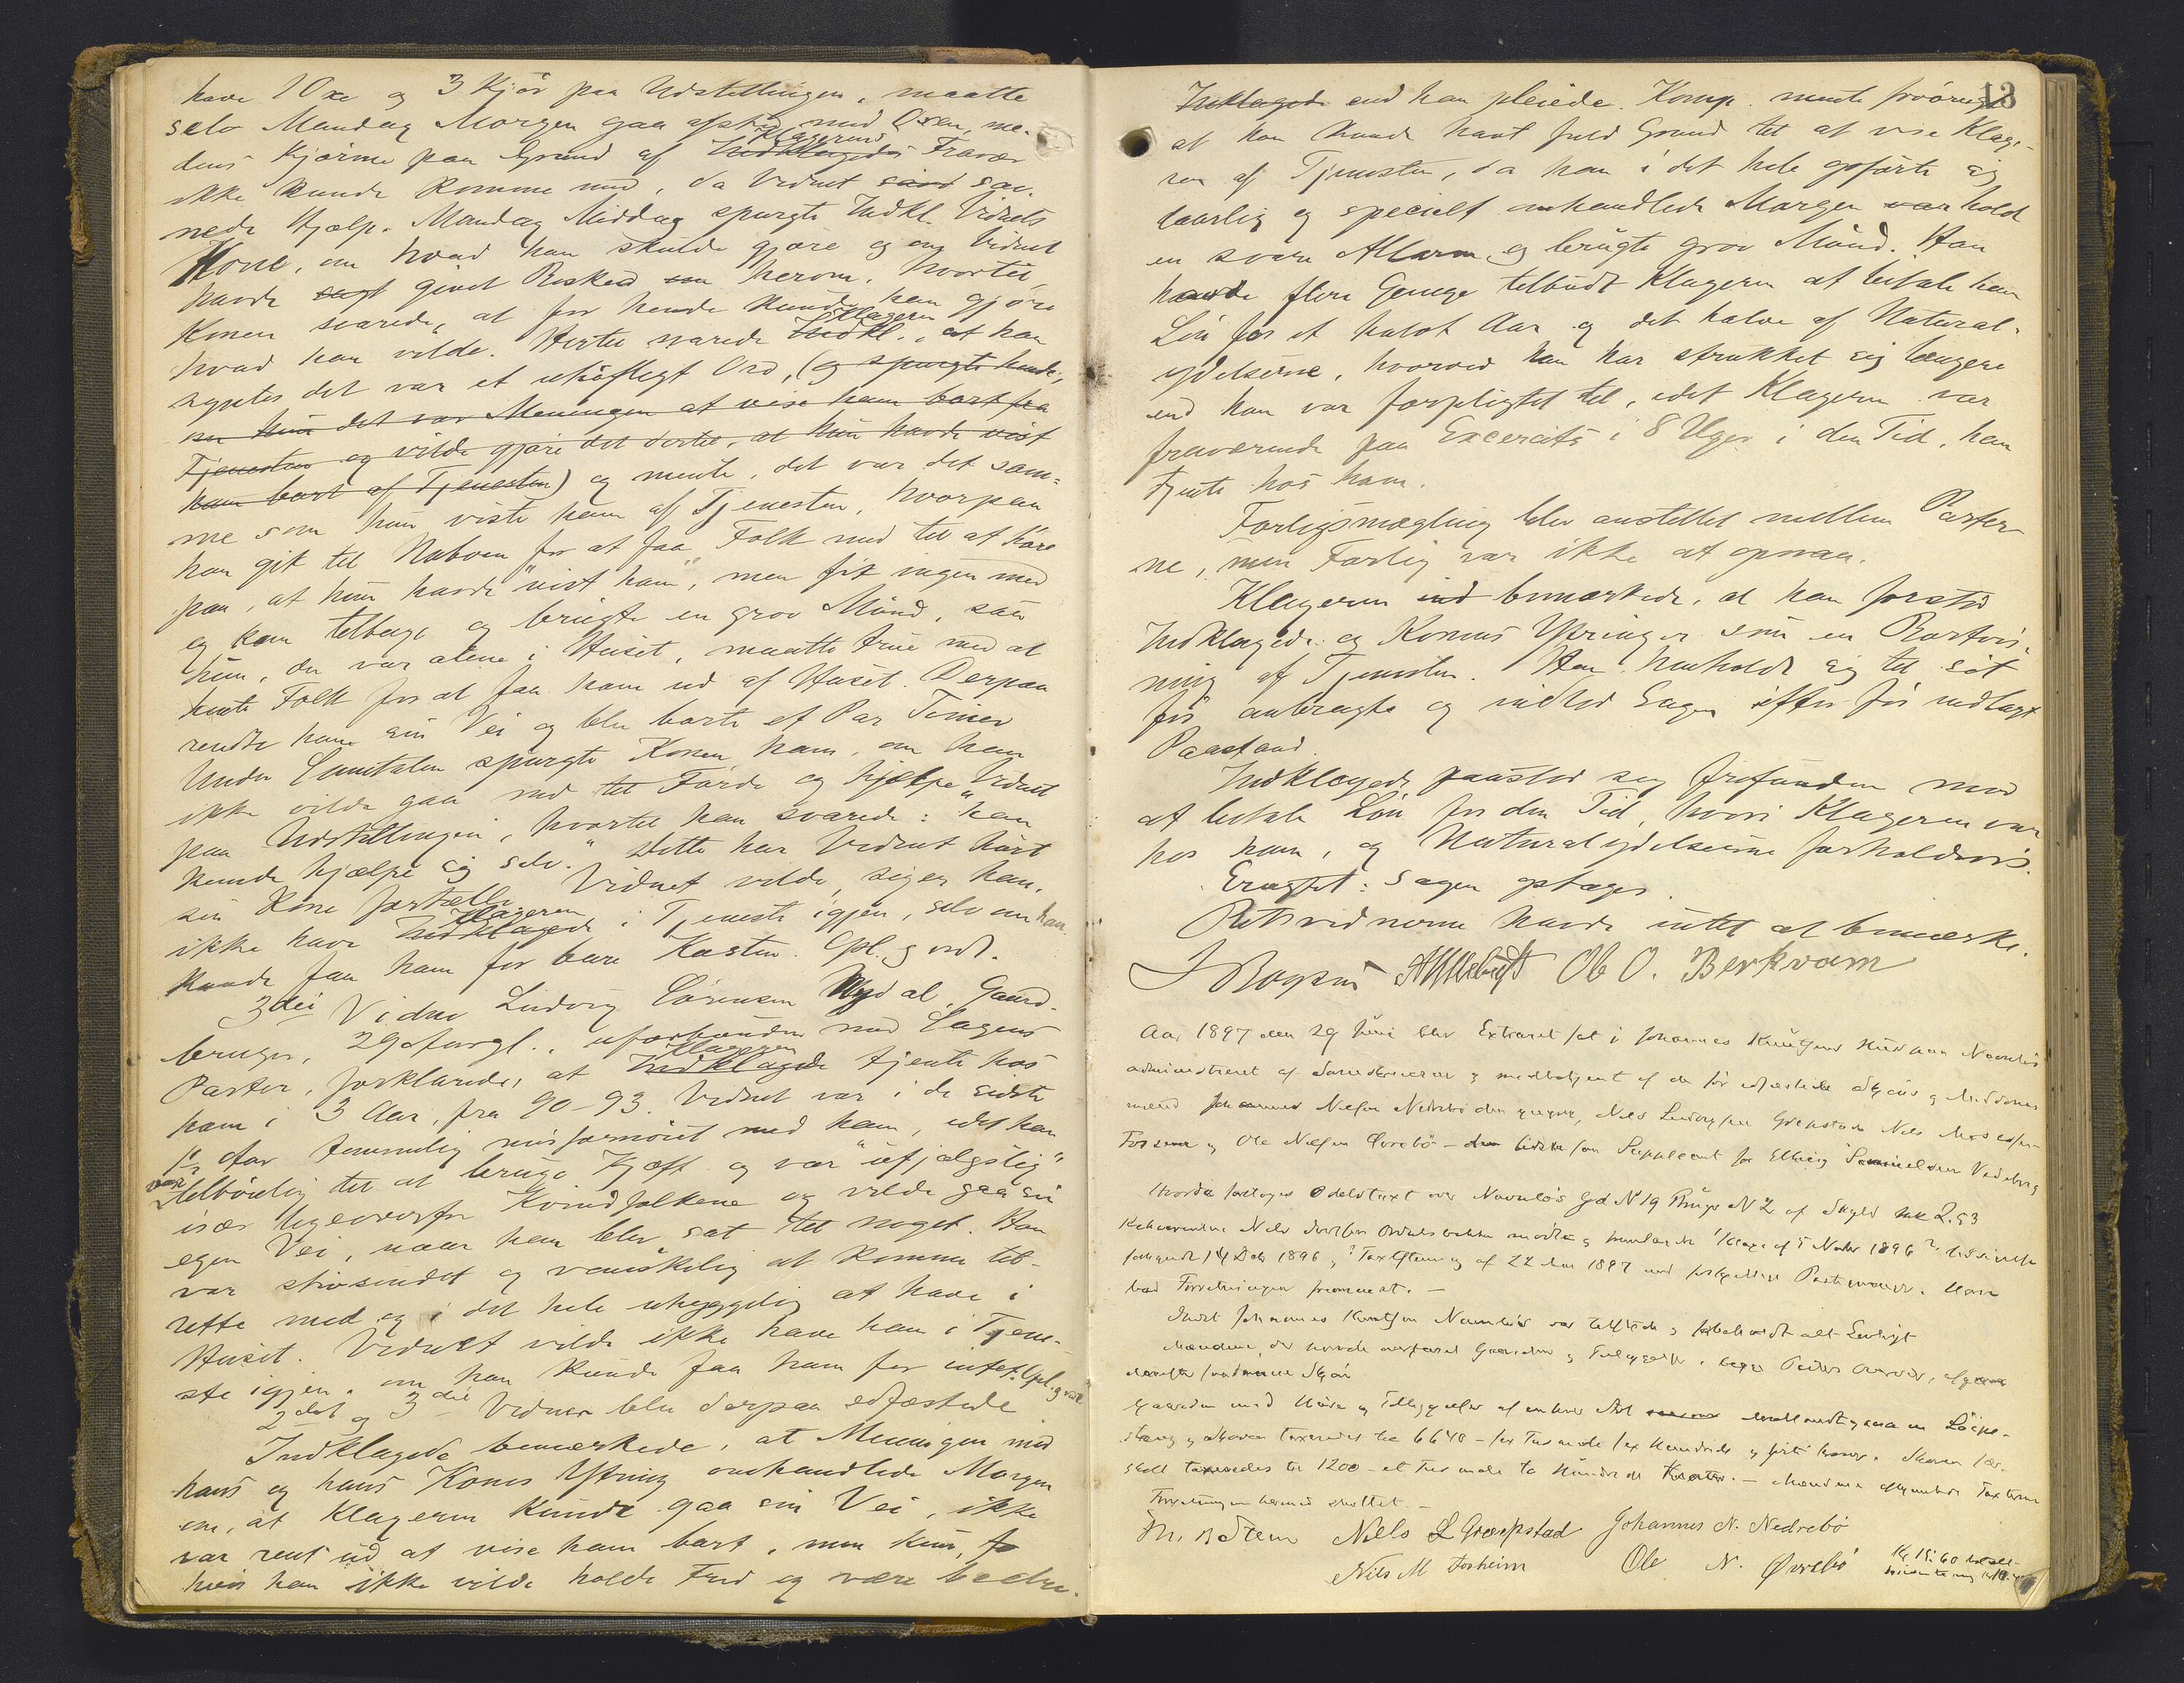 have 1 Oxe og 3 Kjør paa Udstillingen, maatte
selv Mandag Morgen gaa afsted med Oxen, me-
dens Kjørene paa Grund af Indklagedes Klagerens Fravær
ikke kunde komme med, da Vidnet saa sav-
nede Hjælp. Mandag Middag spurgte Indkl. Vidnets
Kone, om hvad han skulde gjøre og om Vidnet
havde sagt givet Besked om herom, hvortil
Konen svarede, at for hende kunde han gjøre
hvad han vilde. Hertil svarede Indkl. Klageren, at han
syntes det var et uhøfligt Ord, (og spurgte hende,
om hun det var Meningen at vise ham bort fra
Tjenesten og vilde gjøre det dertil, at hun havde vist
ham bort af Tjenesten) og mente, det var det sam-
me som hun viste ham af Tjenesten, hvorpaa
han gik til Naboen for at faa Folk med til at høre
paa, at hun havde "vist ham", men fik ingen med
og kom tilbage og brugte en grov Mund, saa
hun, der var alene i Huset, maatte true med at
hente Folk for at faa ham ud af Huset. Derpaa
rendte han sin Vei og blev borte et Par Timer
Under Samtalen spurgte Konen ham, om han
ikke vilde gaa ned til Førde og hjælpe Vidnet
paa Udstillingen, hvortil han svarede: "han
kunde hjælpe sig selv." Dette har Vidnet hørt
sin Kone fortælle. Vidnet vilde, siger han,
ikke have Indklagede Klageren i Tjeneste igjen, selv om han
kunde faa ham for bare Kosten. Opl. g vedt.
3die Vidne Ludvig Sørensen Mydal, Gaard-
bruger, 29 Aar gl., uforbunden med Sagens
Parter, forklarede, at Indklagede Klageren tjente hos
ham i 3 Aar, fra 90-93. Vidnet var i de sidste
1 ½ Aar temmelig misfornøiet med ham, idet han
var tilbøielig til at bruge Kjæft og var "ufjælgslig"
især ligeoverfor Kvindfolkene og vilde gaa sin
egen Vei, naar han blev sat til noget. Han
var stivsindet og vanskelig at komme til-
rette med og i det hele uhyggelig at have i
Huset. Vidnet vilde ikke have ham i Tjene-
ste igjen, om han kunde faa ham for intet. Opl. g vedt.
2det og 3die Vidner blev derpaa edfæstede
Indklagede bemærkede, at Meningen med
hans og hans Kones Ytring omhandlede Morgen
om, at Klageren kunde gaa sin Vei, ikke
var rent ud at vise ham bort, men kun,
hvis han ikke vilde holde Fred og være bedre
13
Indklagede end han pleiede. Komp. mente forøvrigt
at han kunde havt fuld Grund til at vise Klage-
ren af Tjenesten, da han i det hele opførte sig
daarlig og specielt omhandlede Morgen var holdt
en svare Allarm og brugte grov Mund. Han
havde flere Gange tilbudt Klageren at betale ham
Løn for et halvt Aar og det halve af Natural-
ydelserne, hvorved han har strukket sig længere
end han var forpligtet til, idet Klageren var
fraværende paa Excercits i 8 Uger i den Tid, han
tjente hos ham.
Forligsmægling blev anstillet mellem Parter-
ne, men Forlig var ikke at opnaa.
Klageren ind bemærkede, at han forstod
Indklagedes og Konens Ytringer som en Bortvis-
ning af Tjenesten. Han henholdt sig til sit
før anbragte og indlod Sagen efter før nedlagt
Paastand.
Indklagede paastod sig frifunden mod
at betale Løn for den Tid, hvori Klageren var
hos ham, og Naturalydelserne forholdsvis.
Eragtet: Sagen optages.
Retsvidnerne havde intet at bemærke.
Ole O. Berkvam
Aar 1897 den 29 Juni blev Extraret sat i Johannes Knutsens Hus paa
administreret af Sorenskriveren og medbetjent af de før edfæstede Skjøns og Meddoms
mænd Johannes Nielsen Nedrebø den yngre, Niels Ludvigsen Græpstad Niels Mosessen
og Ole Nielsen Øvrebø - den sidste som Suppleant for
Hvorda foretoges Odelstaxt over Gd No 19 Brugs No 2 af Skyld Mk 2.93
af 22 Mai 1897 med
bad Forretningen fremmet. -
Gaarden med Huse og Tilliggelser af enhver Art
taxeredes til 6640 - sex Tusinde sex Hundrede og firti Kroner.
taxeredes til 1200 - et Tusinde to Hundrede Kroner. - Mændene Taxterne
Forretningen hermed sluttet. -
Niels L Græpstad Johannes N. Nedrebø
Nils M Forheim Ole N. Øvrebø